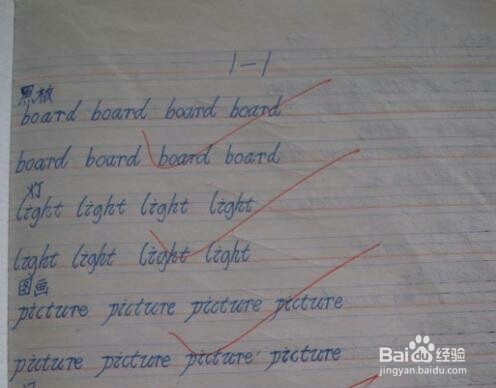 1-1
黑板
board board board board
board board board board
灯
light light light light
light light light light
图画
picture picture picture picture
picture picture picture picture
Bai百度经验
jingyan.baidu.com